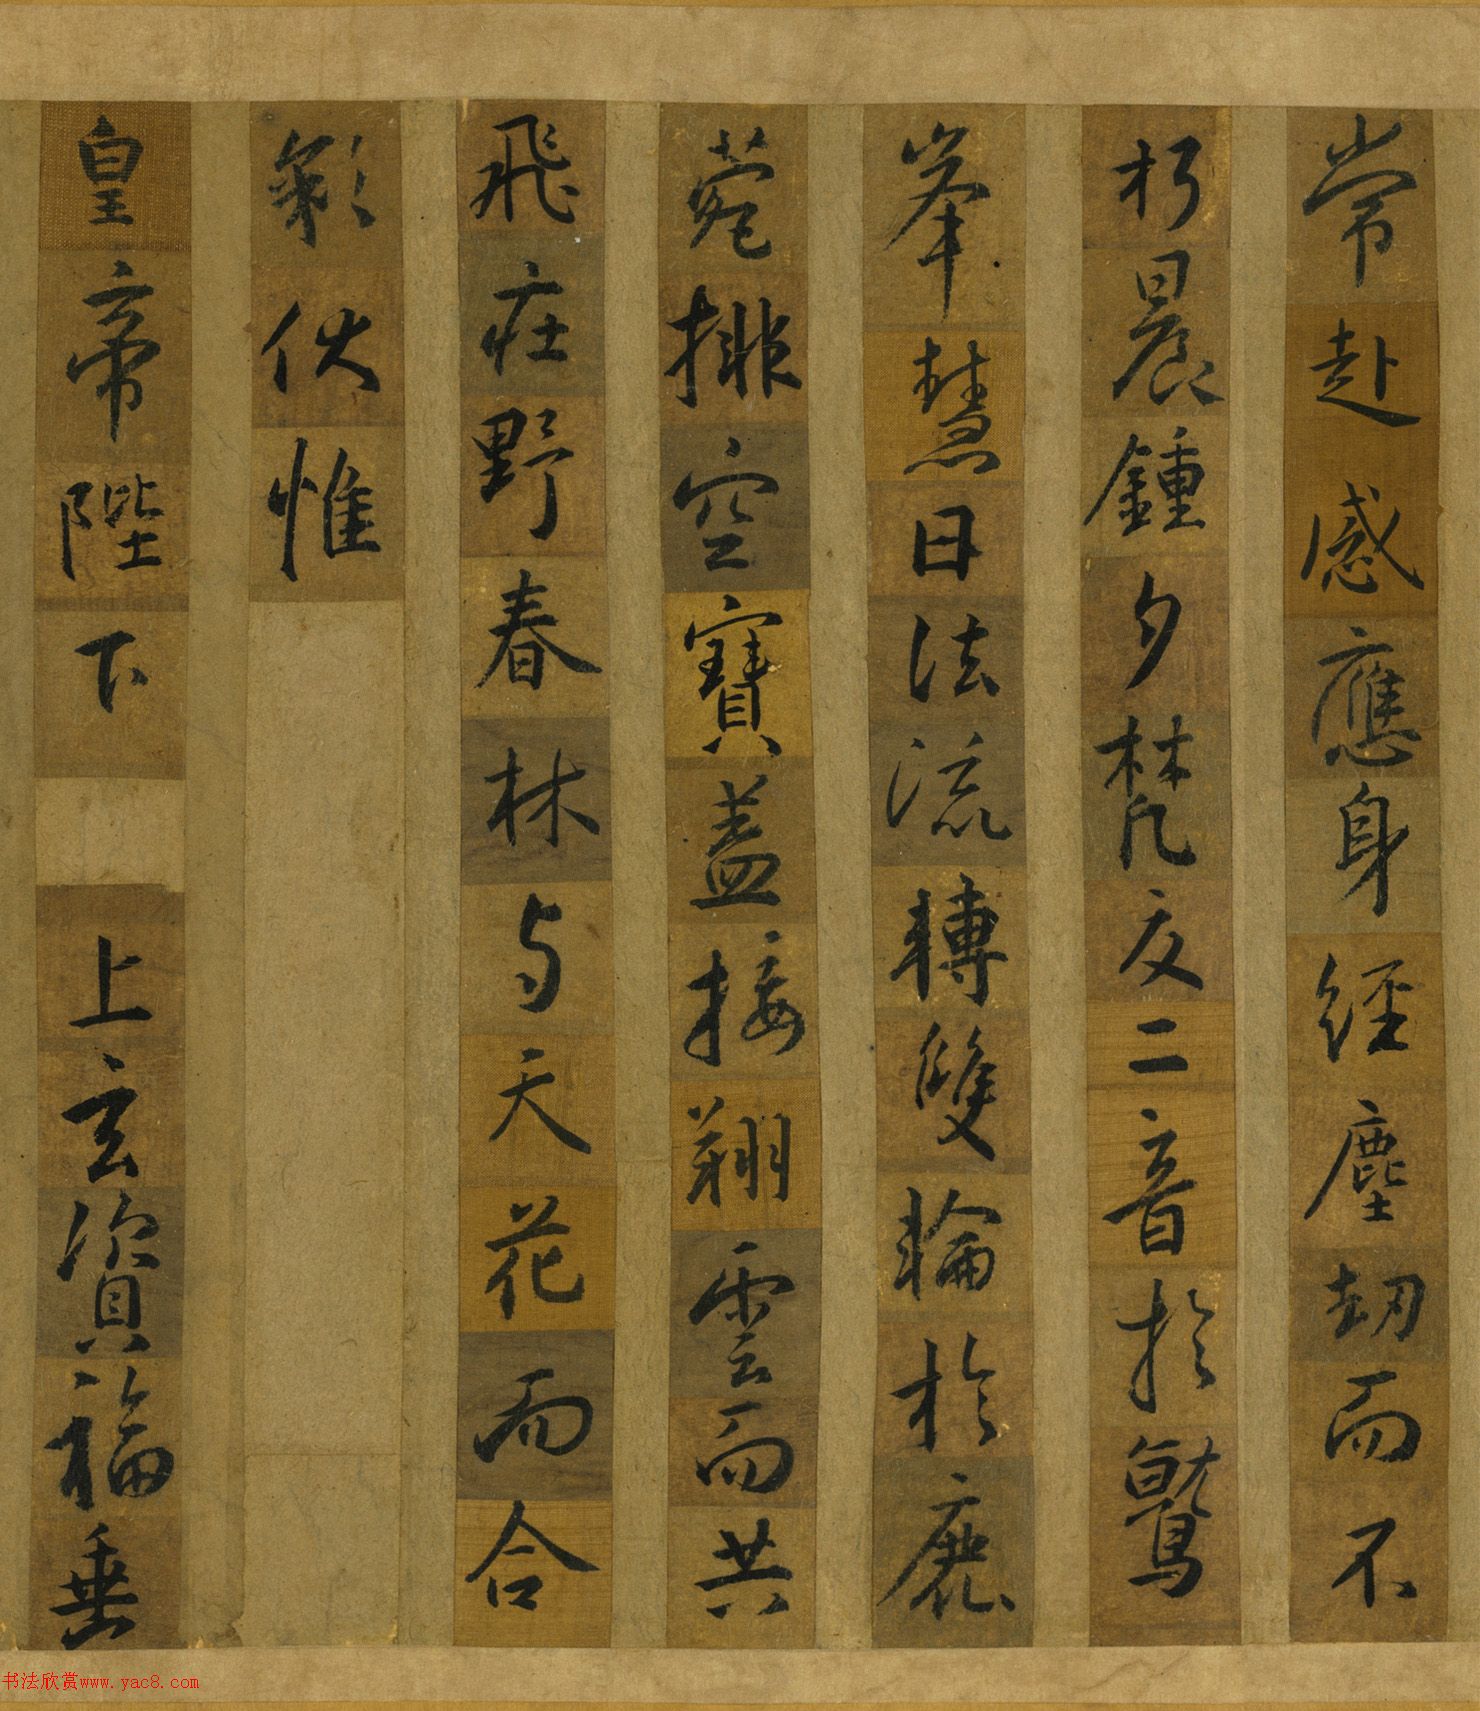 常赴感應身經塵劫而不
朽晨鍾夕梵交二音於鷲
峯慧日法流轉雙輪於鹿
菀排空寶蓋接翔雲而共
飛莊野春林与天花而合
彩伏惟
皇帝陛下 上玄資福垂
书法欣赏www.yac8.com